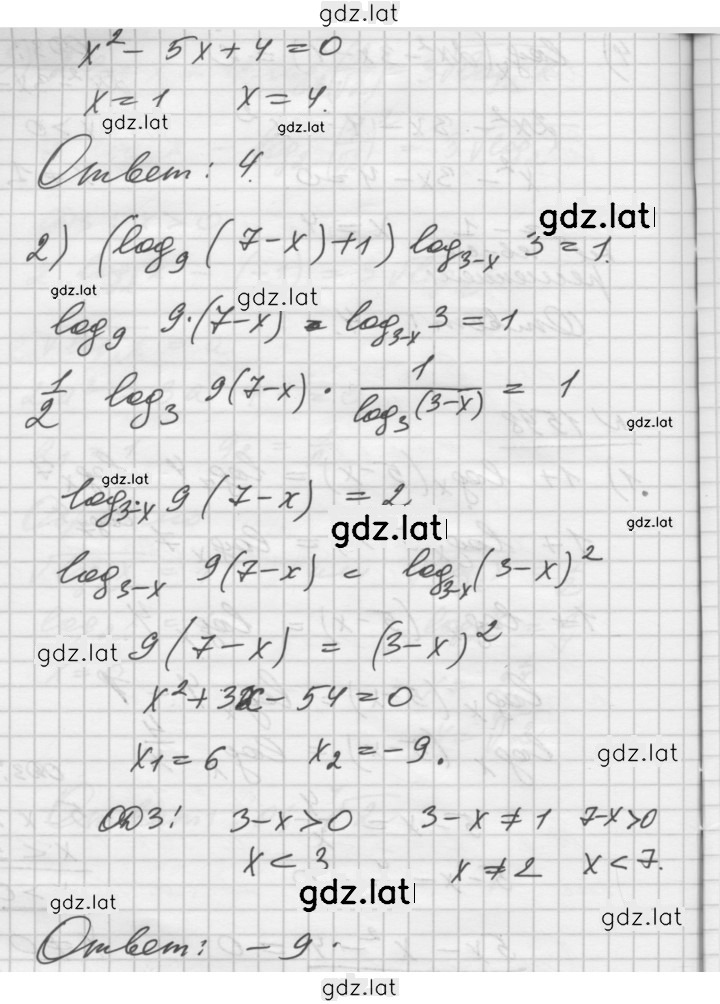 gdz.lat
x² - 5x + 4 = 0
x = 1 x = 4.
gdz.lat gdz.lat
Ответ: 4.
gdz.lat
2) (log₉ (7-x)+1) log₃₋ₓ 3 = 1.
gdz.lat gdz.lat
log₉ 9·(7-x) · log₃₋ₓ 3 = 1
1/2 log₃ 9(7-x) · 1/log₃(3-x) = 1
gdz.lat
gdz.lat
log₃₋ₓ 9(7-x) = 2.
gdz.lat gdz.lat
log₃₋ₓ 9(7-x) = log₃₋ₓ(3-x)²
gdz.lat 9(7-x) = (3-x)²
x² + 3x - 54 = 0
x₁ = 6 x₂ = -9. gdz.lat
ОДЗ! 3-x>0 3-x≠1 7-x>0
x<3 x≠2 x<7.
gdz.lat gdz.lat gdz.lat
Ответ: -9.
gdz.lat